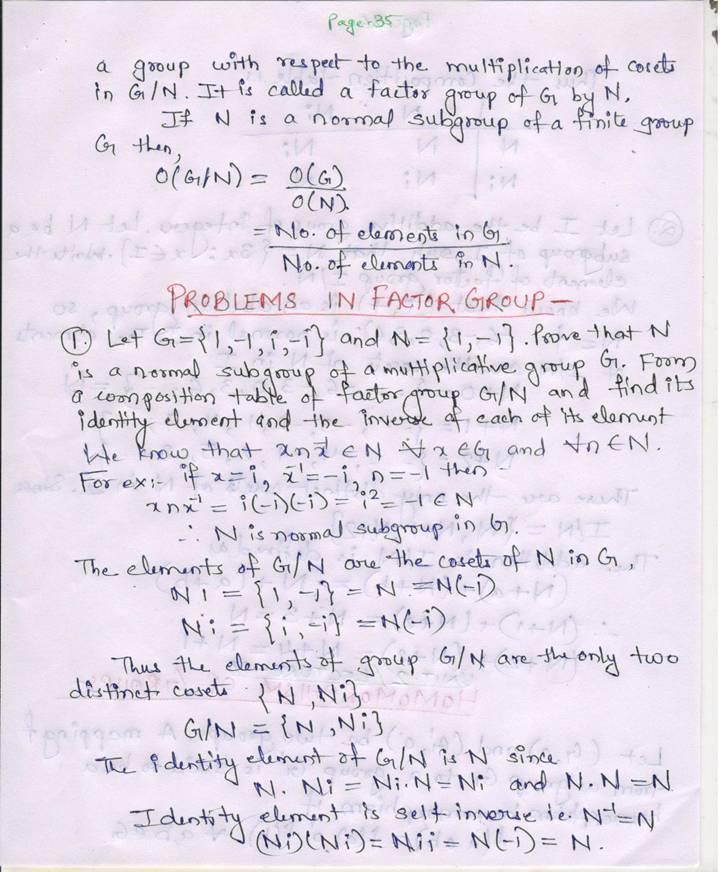 Page-35
a group with respect to the multiplication of cosets
in G/N. It is called a factor group of G by N.
If N is a normal subgroup of a finite group
G then,
O(G/N) = O(G)
O(N).
= No. of elements in G.
No. of elements in N.
PROBLEMS IN FACTOR GROUP –
① Let G={1,-1,i,-i} and N= {1,-1}. Prove that N
is a normal subgroup of a multiplicative group G. Form
a composition table of factor group G/N and find its
identity element and the inverse of each of its element
We know that xnx⁻¹ ∈ N ∀ x ∈ G and ∀n ∈ N.
For ex:- if x = i, x⁻¹ = -i, n = -1 then
xnx⁻¹ = i(-1)(-i) = i² = -1 ∈ N
∴ N is normal subgroup in G.
The elements of G/N are the cosets of N in G,
N1 = {1, -1} = N = N(-1)
Ni = {i, -i} = N(-i)
Thus the elements of group G/N are the only two
distinct cosets {N, Ni}
G/N = {N, Ni}
The identity element of G/N is N since
N. Ni = Ni. N = Ni and N. N = N
Identity element is self inverse ie. N⁻¹=N
(Ni)(Ni) = Nii = N(-1) = N.